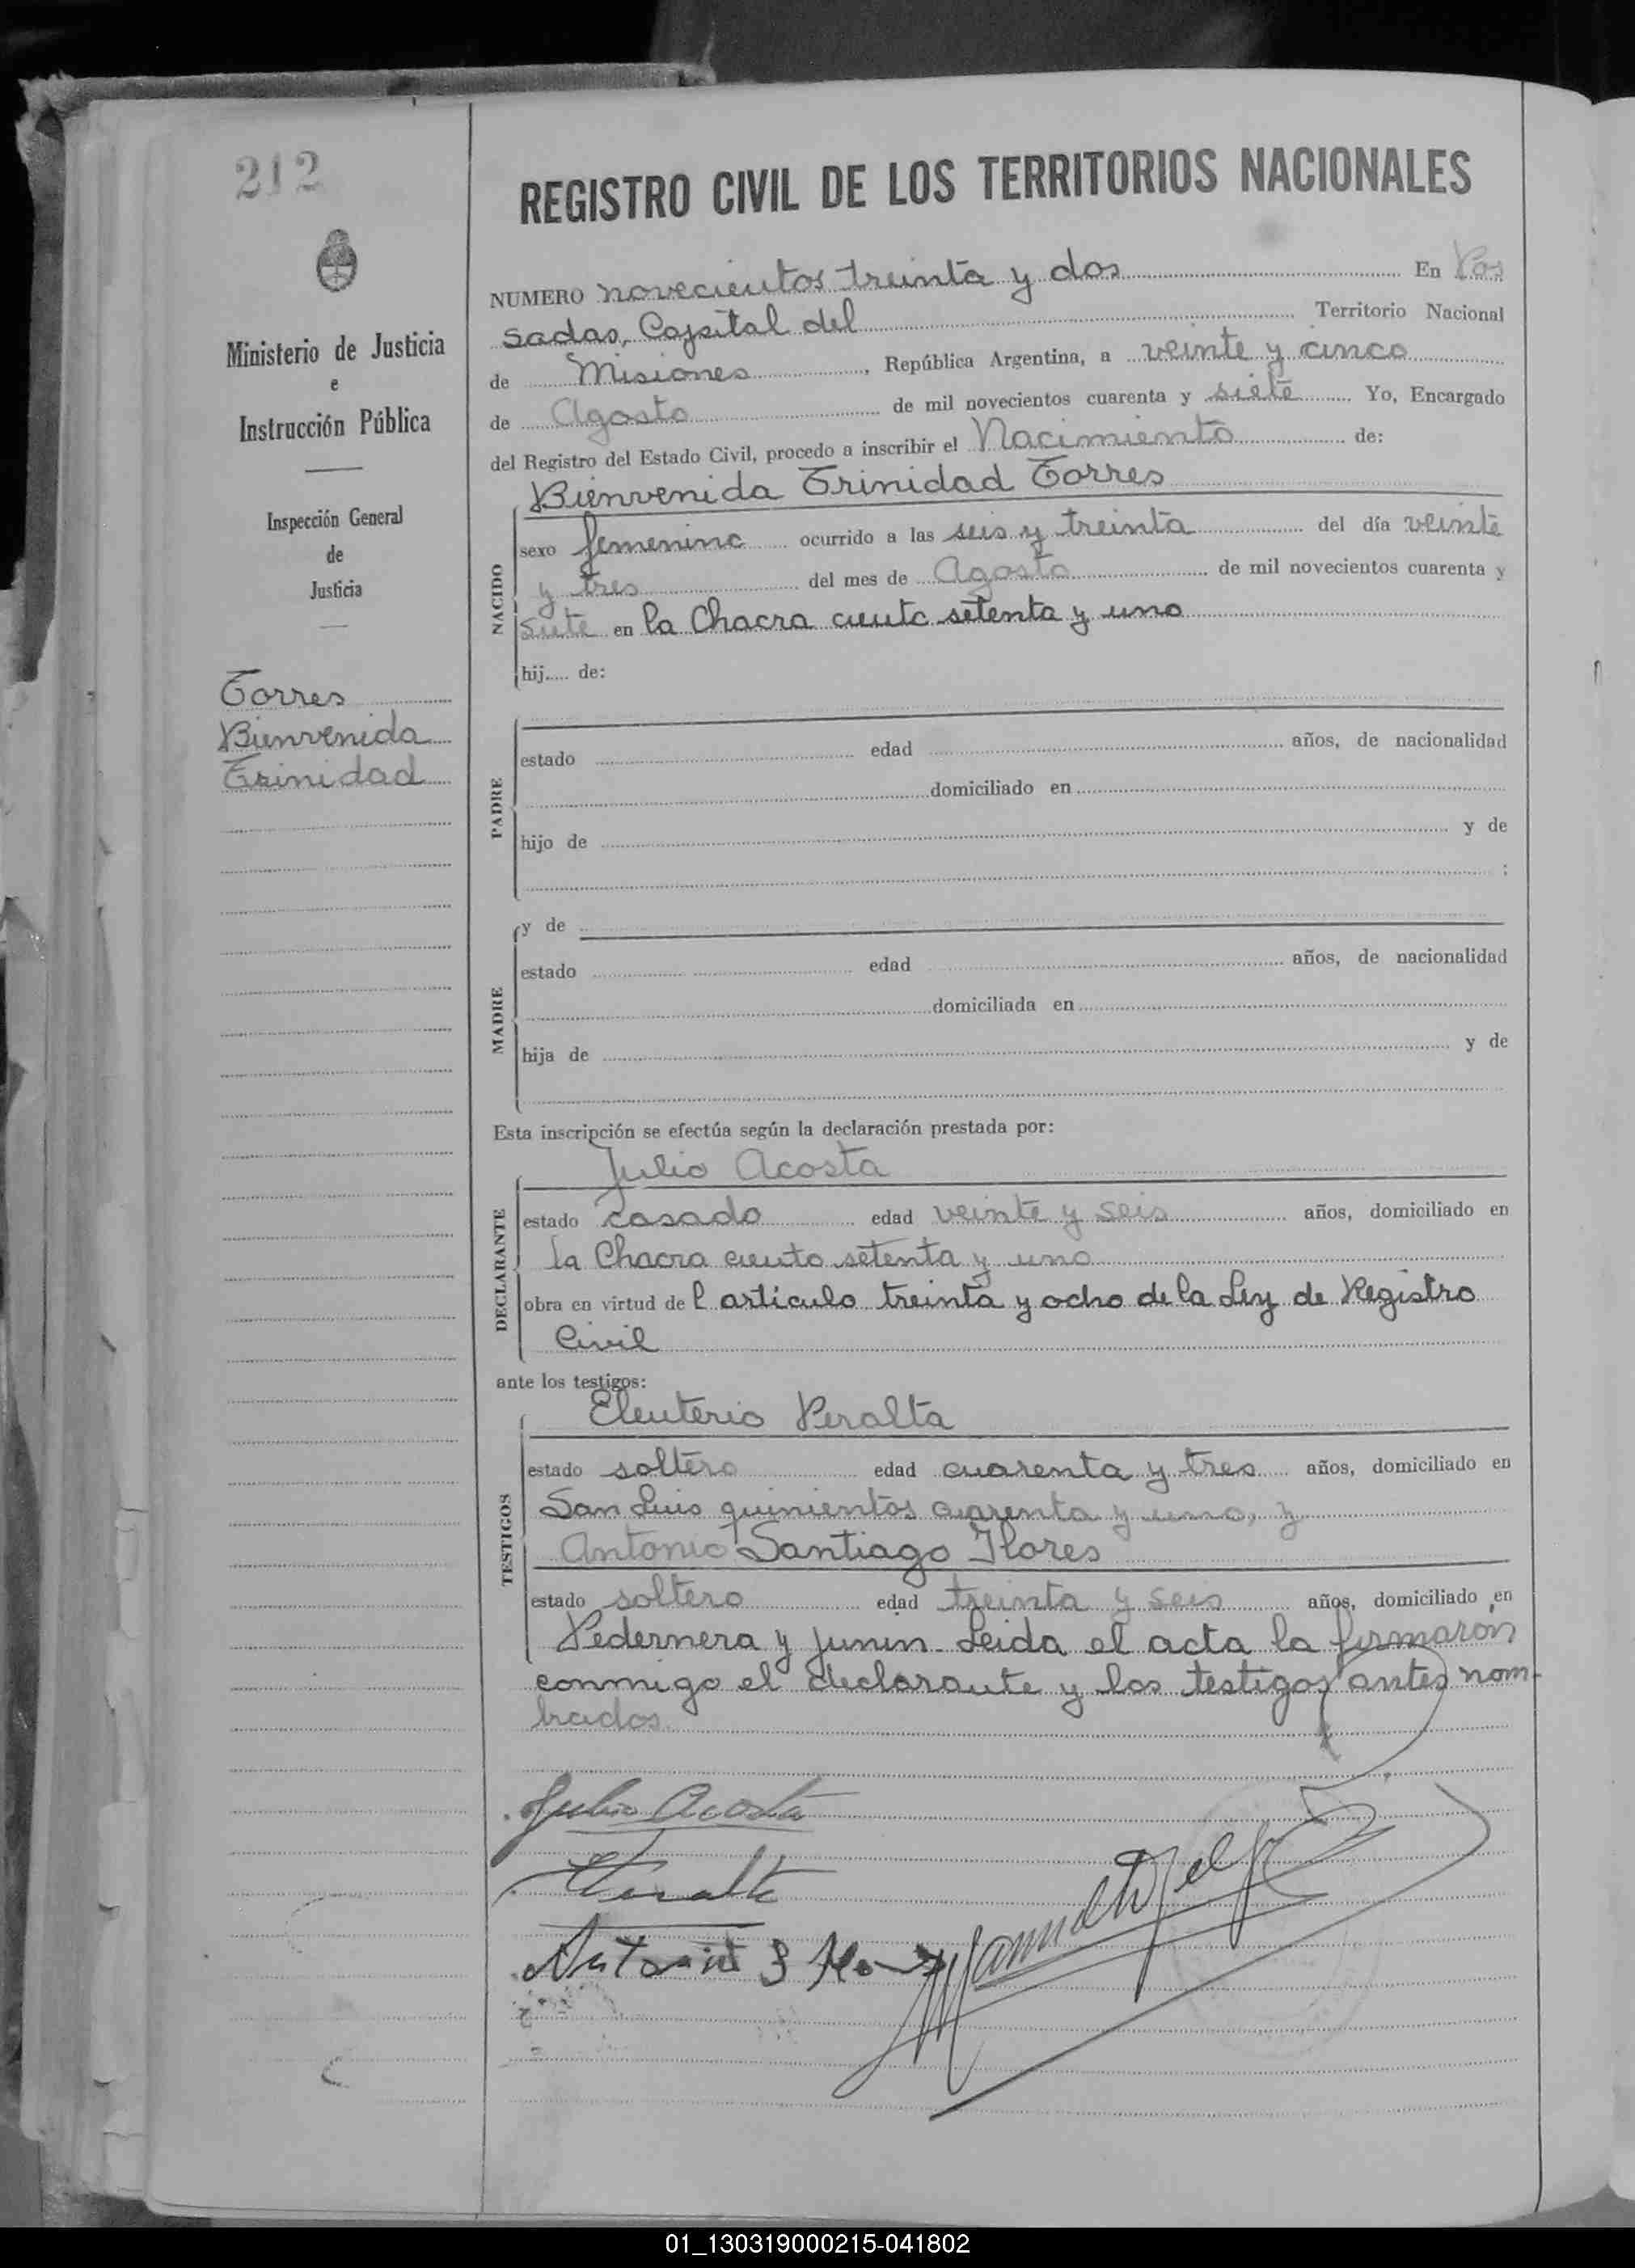 212
Ministerio de Justicia
e
Instrucción Pública
Inspección General
de
Justicia
Torres
Bienvenida
Trinidad
REGISTRO CIVIL DE LOS TERRITORIOS NACIONALES
NUMERO novecientos treinta y dos En Pos
sadas, Capital del Territorio Nacional
de Misiones, República Argentina, a veinte y cinco
de Agosto de mil novecientos cuarenta y siete Yo, Encargado
del Registro del Estado Civil, procedo a inscribir el Nacimiento de:
Bienvenida Trinidad Torres
NACIDO
sexo femenino ocurrido a las seis y treinta del día veinte
y tres del mes de Agosto de mil novecientos cuarenta y
siete en la Chacra ciento setenta y uno
hij..... de:
PADRE
estado edad años, de nacionalidad
domiciliado en
hijo de y de
;
MADRE
y de
estado edad años, de nacionalidad
domiciliada en
hija de y de
Esta inscripción se efectúa según la declaración prestada por:
Julio Acosta
DECLARANTE
estado casado edad veinte y seis años, domiciliado en
la Chacra ciento setenta y uno
obra en virtud del articulo treinta y ocho de la Ley de Registro
Civil
ante los testigos:
Eleuterio Peralta
TESTIGOS
estado soltero edad cuarenta y tres años, domiciliado en
San Luis quinientos cuarenta y uno, y
Antonio Santiago Flores
estado soltero edad treinta y seis años, domiciliado en
Pedernera y Junin. Leida el acta la firmaron
conmigo el declarante y los testigos antes nom-
brados.
Julio Acosta
Peralta
Antonio S Flores
01_130319000215-041802